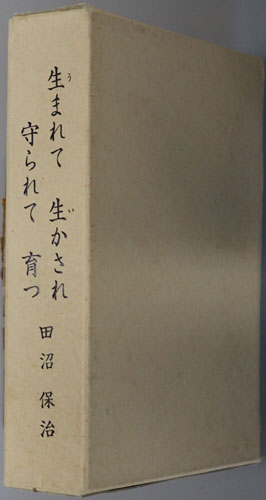 生まれて 生かされ
守られて 育つ
田沼 保治